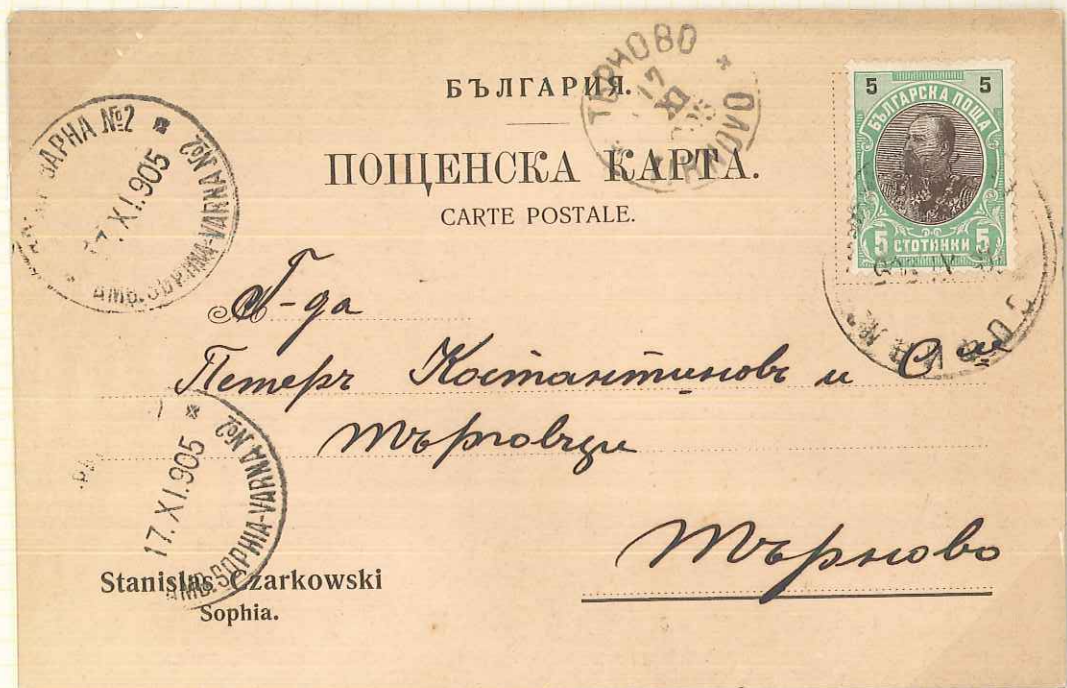 БЪЛГАРИЯ.
ПОЩЕНСКА КАРТА.
CARTE POSTALE.
5 5
БЪЛГАРСКА ПОЩА
5 СТОТИНКИ 5
ТЪРНОВО
17 XI
ВАРНА №2
17.XI.905
AMB.SOPHIA-VARNA №2
Г-да
Петеръ Костантиновъ и С-ие
Търговци
Търново
17.XI.905
AMB.SOPHIA-VARNA №2
Stanislas Czarkowski
Sophia.